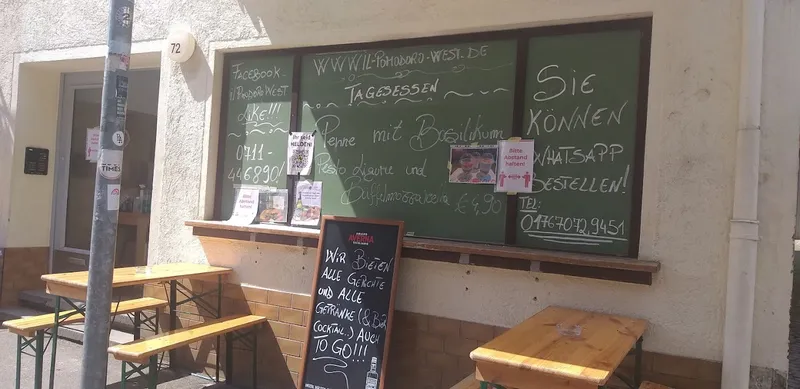 72
FACEBOOK
IL POMODORO WEST
LIKE!!!
0711-
446890
WWW.IL-POMODORO-WEST.DE
TAGESESSEN
Penne mit Basilikum
Pesto
und
Büffelmozzarella € 4,90
Ihr seid
HELDEN!
Bitte
Abstand
halten!
SIE
KÖNNEN
WHATSAPP
BESTELLEN!
TEL:
017670729451
AVERNA
WIR BIETEN
ALLE GERICHTE
UND ALLE
GETRÄNKE (&BAR
COCKTAIL) AUCH
TO GO!!!
TIMES